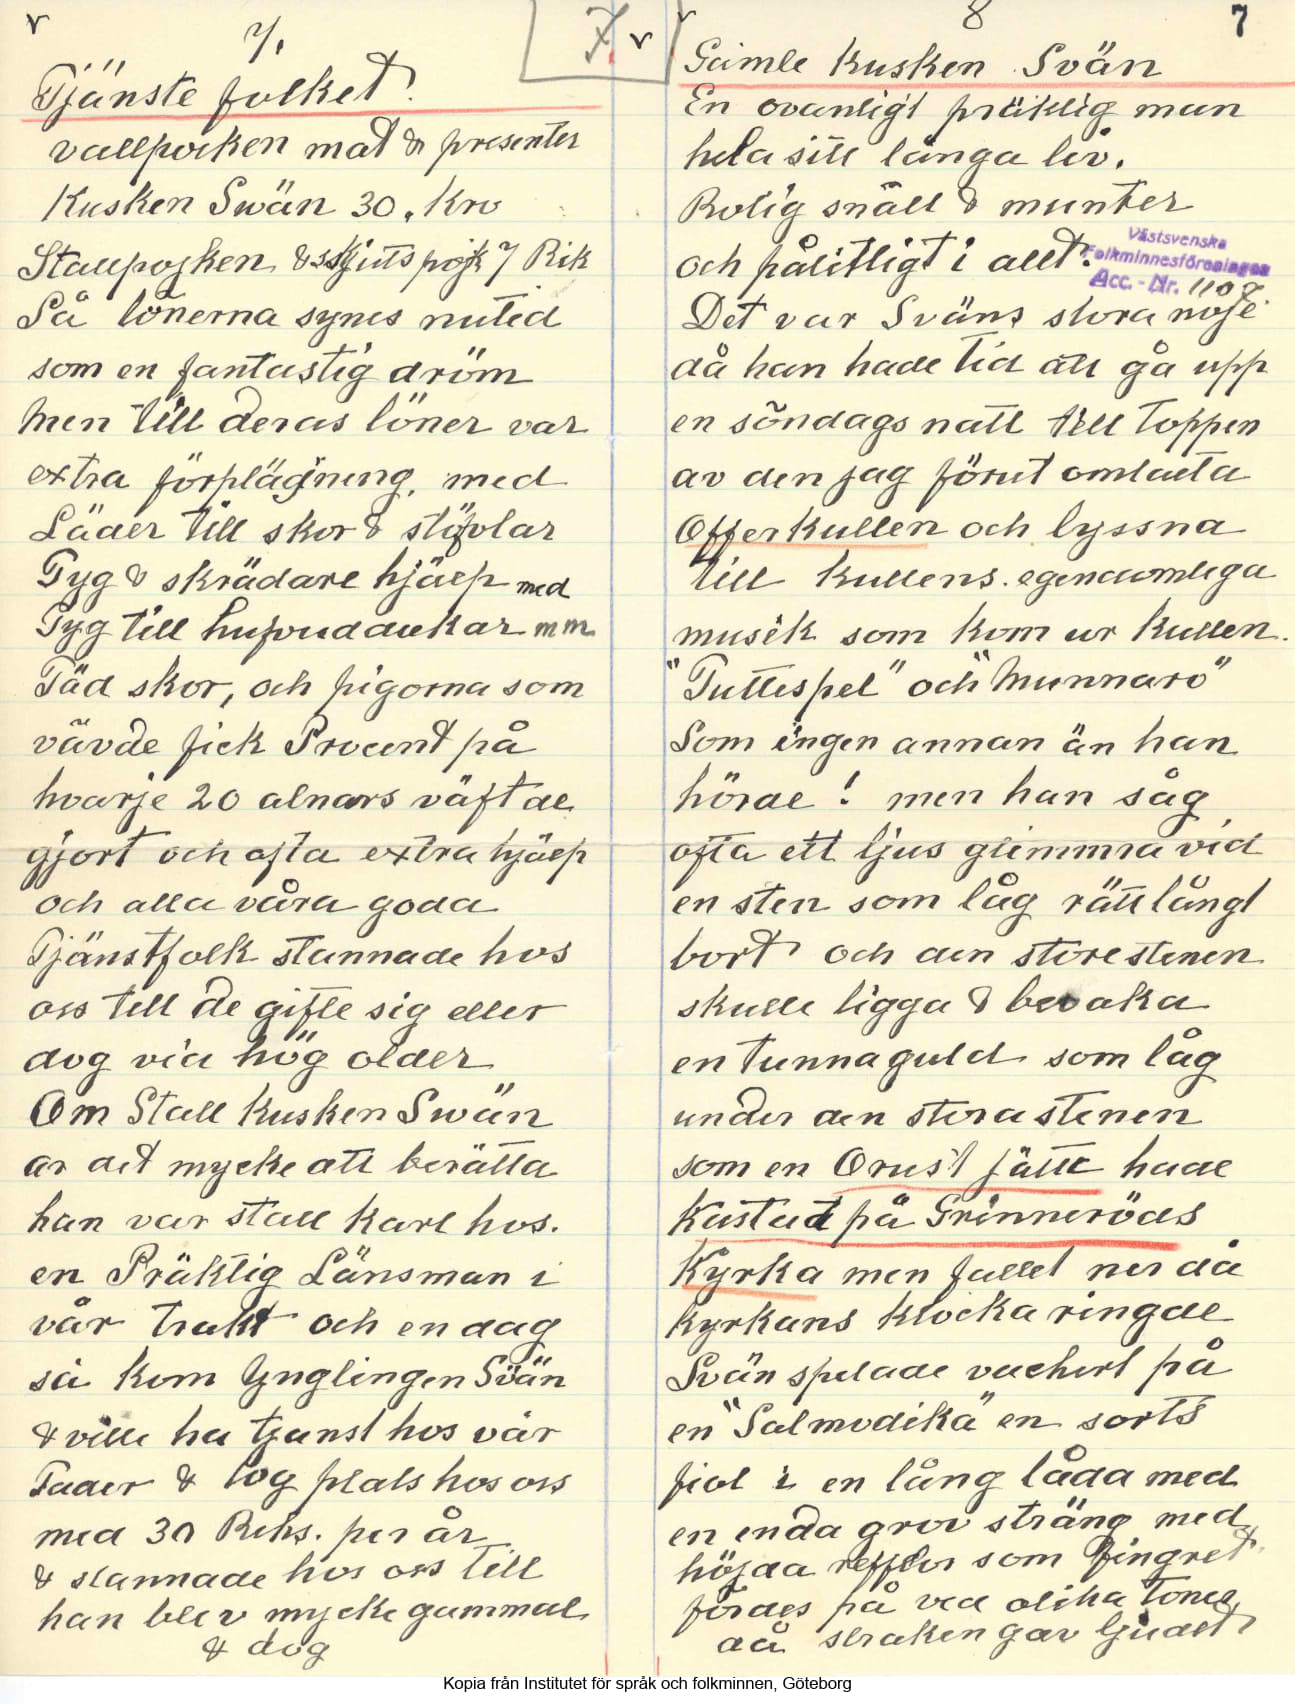 7.
Tjänste folket.
vallpocken mat & presenter
Kusken Swän 30. Kro
Stallpojken & skjutspojk 7 Rik
Så lönerna synes nutid
som en fantastig dröm
Men till deras löner var
extra förplägning, med
Läder till skor & stöfvlar
Tyg & skrädare hjälp med
Tyg till hufvuddukar mm
Täd skor, och pigorna som
vävde fick Procent på
hvarje 20 alnars väft de
gjort och ofta extra hjälp
och alla våra goda
Tjänstfolk stannade hos
oss till de gifte sig eller
dog vid hög ålder
Om Stall Kusken Swän
är det mycke att berätta
han var stall karl hos.
en Präktig Länsman i
vår trakt och en dag
så kom Ynglingen Svän
& ville ha tjänst hos vår
Fader & tog plats hos oss
med 30 Riks. per år
& stannade hos oss till
han blev mycke gammal
& dog
7
8
7
Gamle Kusken Svän
En ovanligt präktig man
hela sitt långa liv.
Rolig snäll & munter
och pålitligt i allt.
Västsvenska
Folkminnesföreningen
Acc. - Nr. 1108
Det var Sväns stora nöje
då han hade tid att gå upp
en söndags natt till toppen
av den jag förut omtalta
Offerkullen och lyssna
till kullens egendomliga
musik som kom ur kullen.
"Tuttespel" och "Munnaro"
Som ingen annan än han
hörde! men han såg
ofta ett ljus glimmra vid
en sten som låg rätt långt
bort och den store stenen
skulle ligga & bevaka
en tunna guld som låg
under den stora stenen
som en Orust jätte hade
Kastat på Grinneröds
Kyrka men fallet ner då
kyrkans klocka ringde
Svän spelade vackert på
en "Salmodika" en sorts
fiol i en lång låda med
en enda grov sträng med
höjda refflor som fingret
fördes på ved olika toner
då stråken gav ljudet
Kopia från Institutet för språk och folkminnen, Göteborg